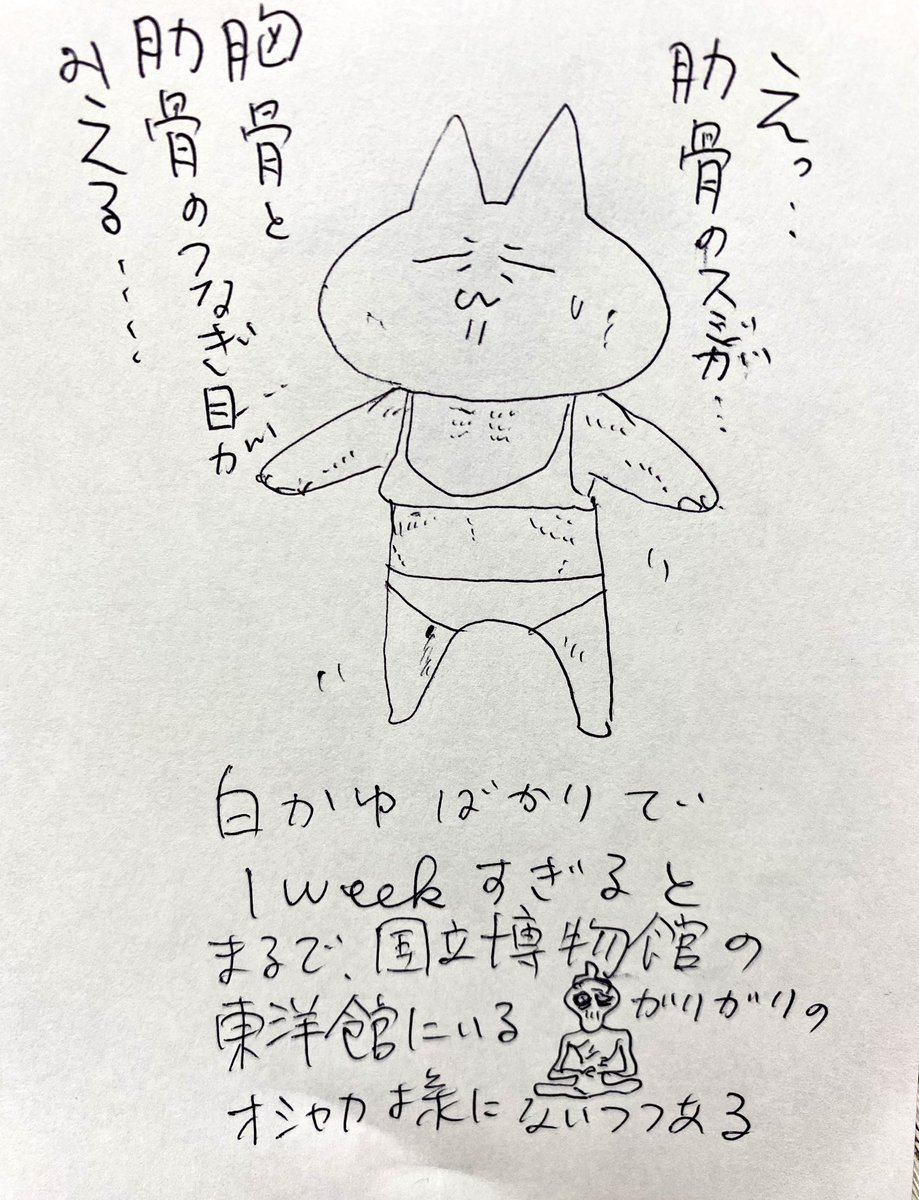 えっ…
肋骨のスジが…
胸骨と
肋骨のつなぎ目が
みえる….
白かゆばかりで
1weekすぎると
まるで、国立博物館の
東洋館にいるがりがりの
オシャカ様にないつつある